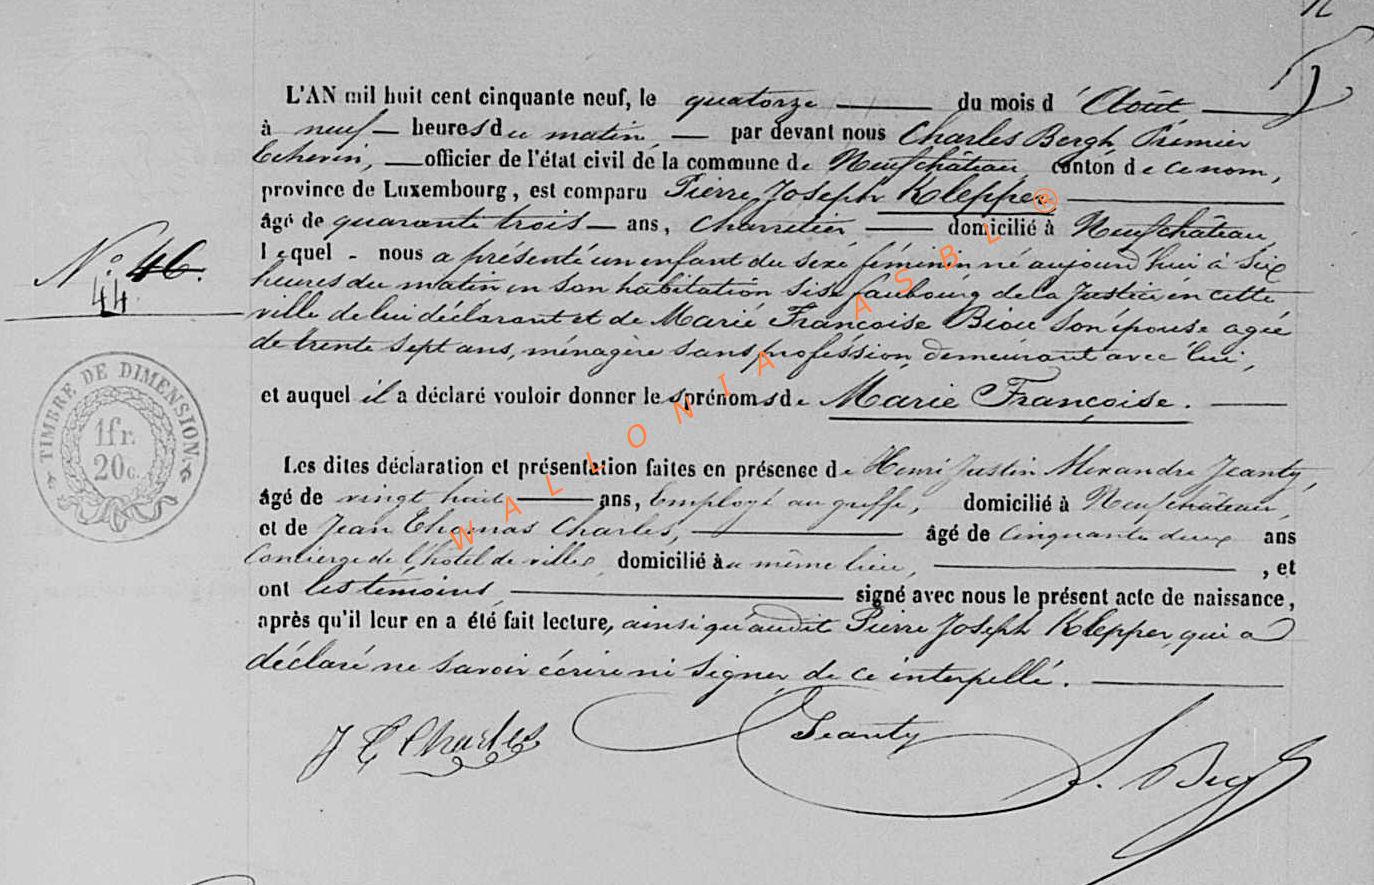 L'AN mil huit cent cinquante neuf, le quatorze du mois d'Août
à neuf heures du matin, par devant nous Charles Bergh, Premier
Echevin, officier de l'état civil de la commune de Neufchâteau, canton de ce nom,
province de Luxembourg, est comparu Pierre Joseph Klepper
âgé de quarante trois ans, charretier domicilié à Neufchâteau,
lequel nous a présenté un enfant du sexe féminin né aujourd'hui à six
N° 46.
44
heures du matin en son habitation sise faubourg de la Justice en cette
ville de lui déclarant et de Marie Françoise Biou son épouse agée
de trente sept ans, ménagère sans profession demeurant avec lui,
et auquel il a déclaré vouloir donner les prénoms de Marie Françoise.
TIMBRE DE DIMENSION
1fr.
20c.
Les dites déclaration et présentation faites en présence de Henri Justin Alexandre Jeanty,
âgé de vingt huit ans, Employé au greffe, domicilié à Neufchâteau,
et de Jean Thomas Charles, âgé de cinquante deux ans
Concierge de l'hôtel de ville, domicilié au même lieu, , et
ont les temoins signé avec nous le présent acte de naissance,
après qu'il leur en a été fait lecture, ainsi qu'audit Pierre Joseph Klepper, qui a
déclaré ne savoir écrire ni signer de ce interpellé.
J T Charles Jeanty
WALLONIA ASBL ®